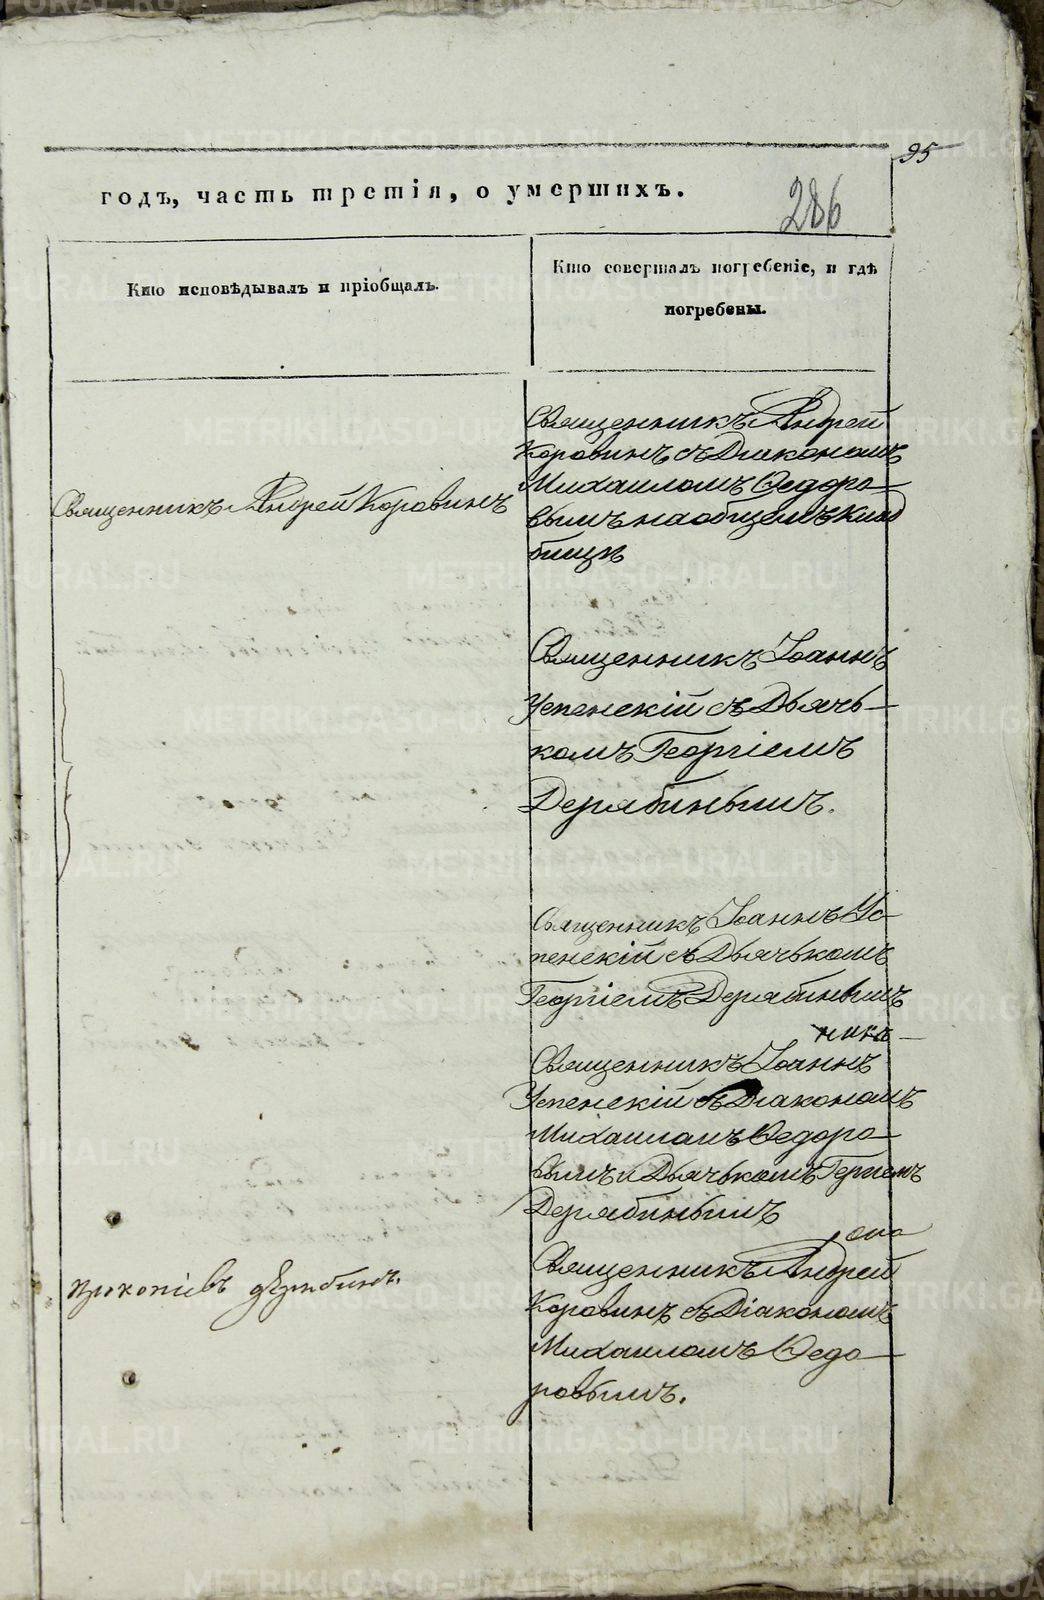 95
годъ, часть третія, о умершихъ.
286
Кто исповѣдывалъ и пріобщалъ.
Кто совершалъ погребеніе, и гдѣ
погребены.
Священникъ Андрей Коровинъ
Священникъ Андрей
Коровинъ съ Діакономъ
Михаиломъ Федоро-
вымъ на общемъ клад
бищѣ
Священникъ Іоаннъ
Успенскій съ Дьячь-
комъ Георгіемъ
Дерябинымъ.
Священникъ Іоаннъ Ус-
пенскій съ Дьячькомъ
Георгіемъ Дерябинымъ
Священникъ Іоаннъ
Успенскій съ Діакономъ
Михаиломъ Федоро-
вымъ и Дьячькомъ
Дерябинымъ
прокопіевъ дерябинъ.
Священникъ Андрей
Коровинъ съ Діакономъ
Михаиломъ Федо-
ровымъ.
METRIKI.GASO-URAL.RU